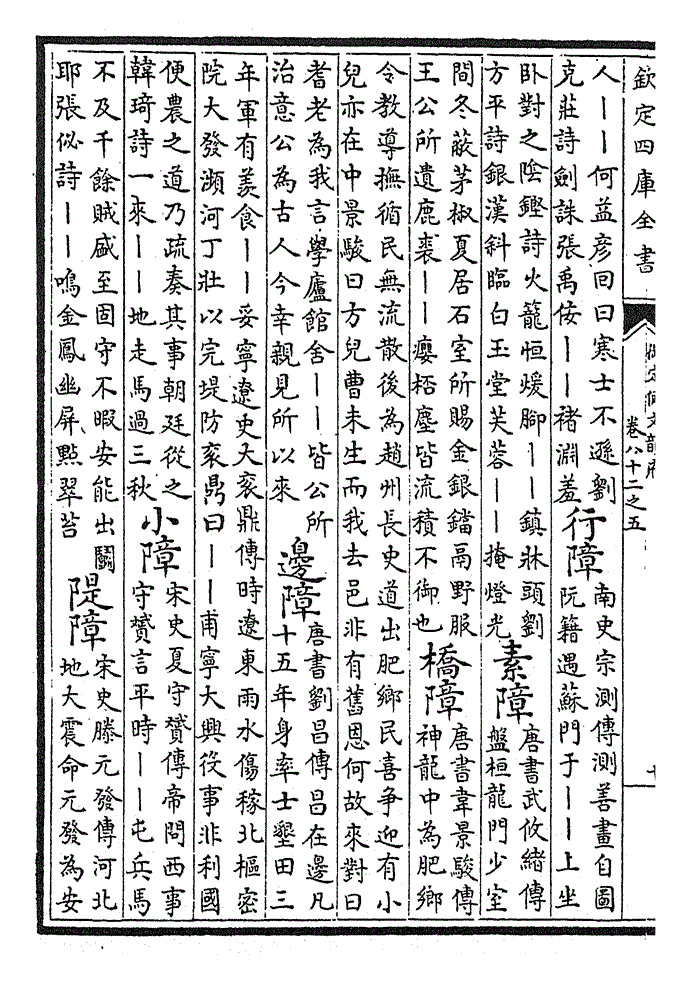 欽定四庫全書
卷八十二之五
人——何益彦回曰寒士不遜劉
克莊詩劍誅張禹佞——褚淵羞
行障
南史宗測傳測善畫自圖
阮籍遇蘇門于——上坐
卧對之陰鏗詩火籠恒煖腳——鎮牀頭劉
方平詩銀漢斜臨白玉堂芙蓉——掩燈光
素障
唐書武攸緒傳
盤桓龍門少室
間冬蔽茅椒夏居石室所賜金銀鐺鬲野服
王公所遺鹿裘——癭桮塵皆流積不御也
橋障
唐書韋景駿傳
神龍中為肥鄉
令教導撫循民無流散後為趙州長史道出肥鄉民喜争迎有小
兒亦在中景駿曰方兒曹未生而我去邑非有舊恩何故來對曰
耆老為我言學廬館舍——皆公所
治意公為古人今幸親見所以來
邊障
唐書劉昌傳昌在邊凡
十五年身率士墾田三
年軍有羨食——妥寧遼史大衮鼎傳時遼東雨水傷稼北樞密
院大發瀕河丁壯以完堤防衮鼎曰——甫寧大興役事非利國
便農之道乃疏奏其事朝廷從之
韓琦詩一來——地走馬過三秋
小障
宋史夏守贇傳帝問西事
守贇言平時——屯兵馬
不及千餘賊盛至固守不暇安能出鬬
耶張佖詩——鳴金鳳幽屏點翠苔
隄障
宋史滕元發傳河北
地大震命元發為安